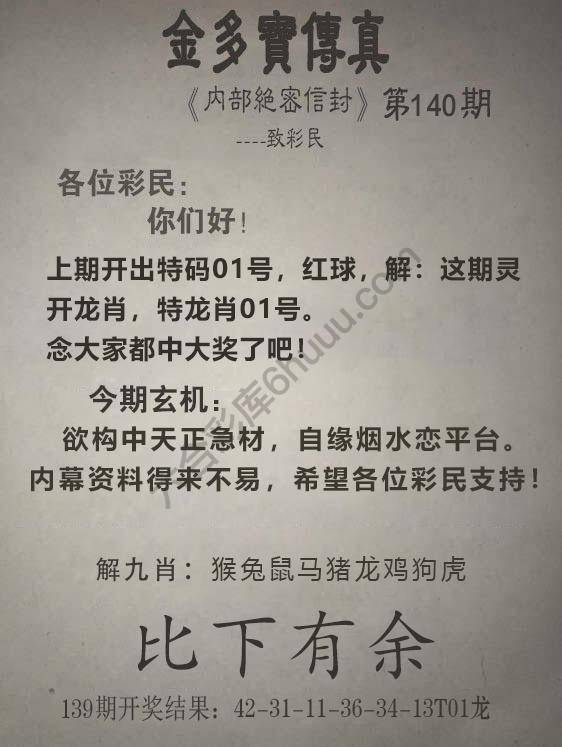 金多寶傳真
《内部絶密信封》第140期
----致彩民
各位彩民：
你们好！
上期开出特码01号，红球，解：这期灵
开龙肖，特龙肖01号。
念大家都中大奖了吧！
今期玄机：
欲构中天正急材，自缘烟水恋平台。
内幕资料得来不易，希望各位彩民支持！
解九肖：猴兔鼠马猪龙鸡狗虎
比下有余
139期开奖结果：42-31-11-36-34-13T01龙
六合彩库6huuu.com